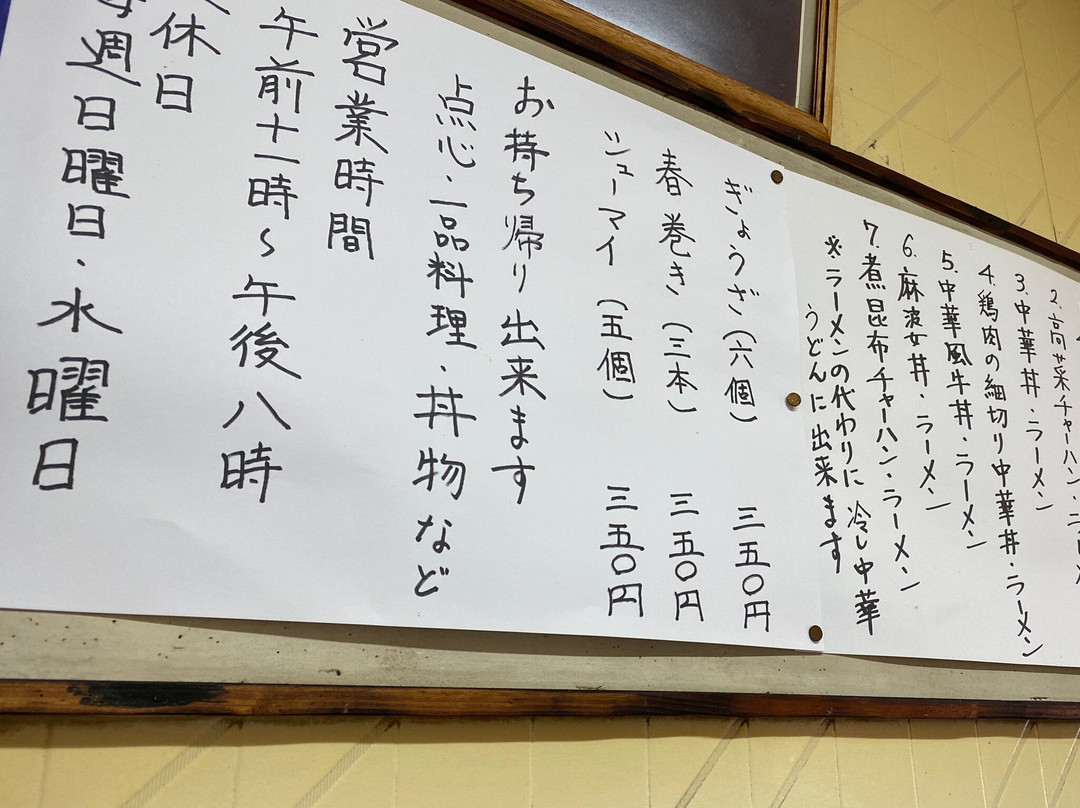 2.高菜チャーハン・ラーメン
3.中華丼・ラーメン
4.鶏肉の細切り中華丼・ラーメン
5.中華風牛丼・ラーメン
6.麻波女丼・ラーメン
7.煮昆布チャーハン・ラーメン
※ラーメンの代わりに冷し中華
うどんに出来ます
ぎょうざ(六個) 三五〇円
春巻き(三本) 三五〇円
シューマイ(五個) 三五〇円
お持ち帰り出来ます
点心・一品料理・丼物など
営業時間
午前十一時~午後八時
休日
毎週日曜日・水曜日